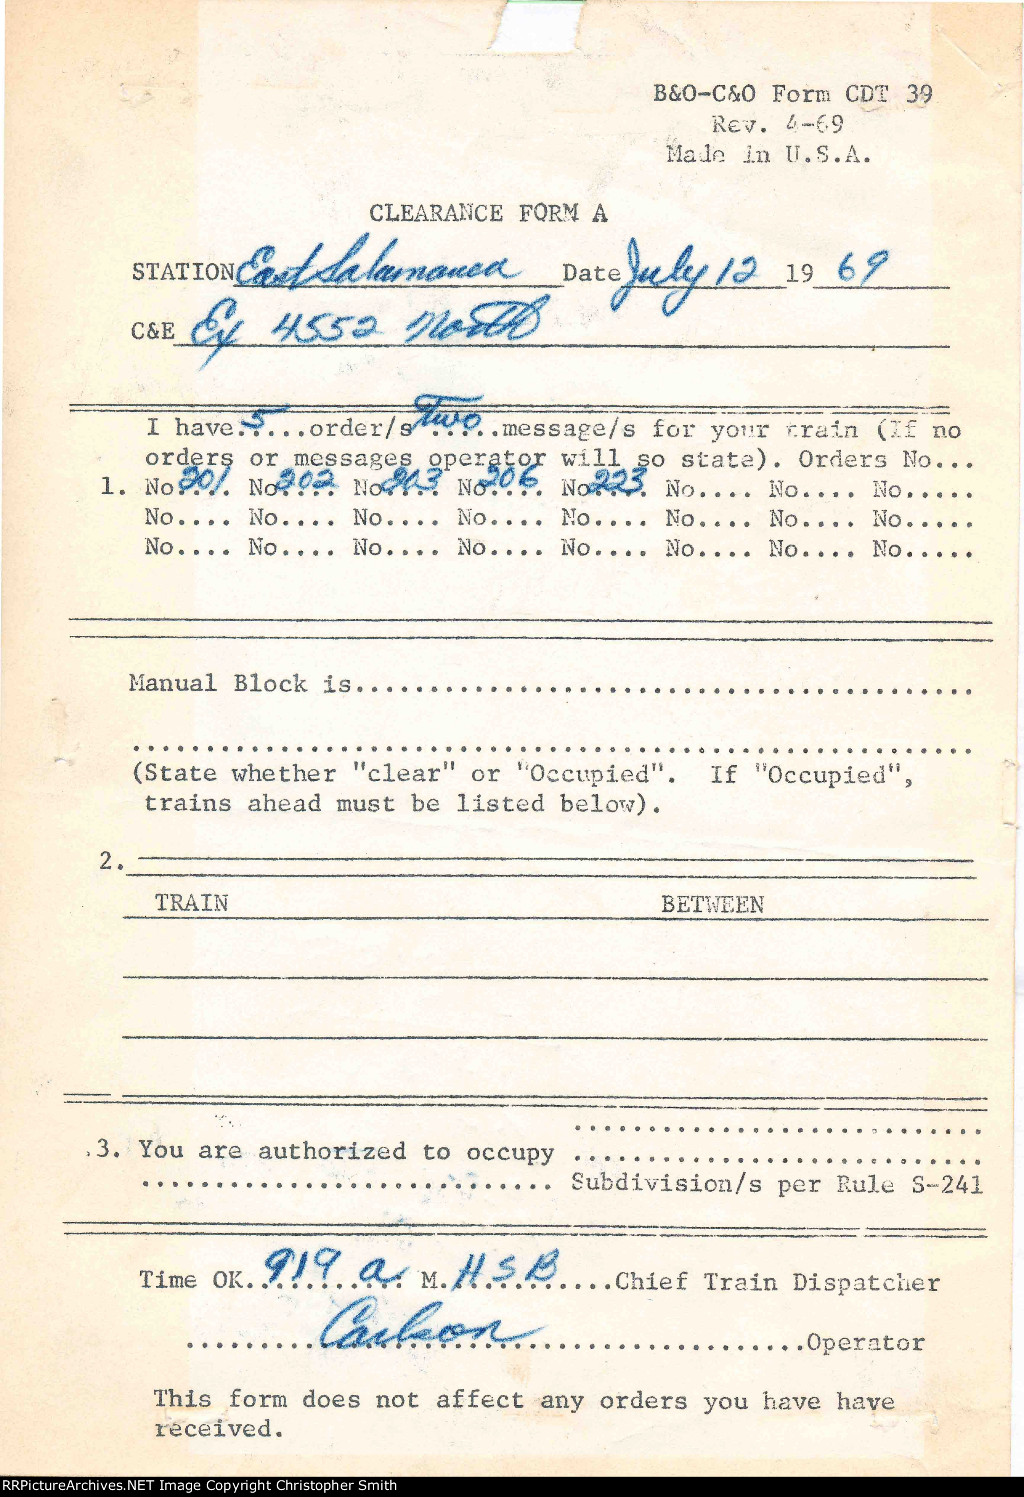 B&O-C&O Form CDT 39
Rev. 4-69
Made in U.S.A.
CLEARANCE FORM A
STATION East Salamanca Date July 12 19 69
C&E Ex 4552 North
I have..5...order/s Two.....message/s for your train (If no
orders or messages operator will so state). Orders No...
1. No 201 No 202 No 203 No 206 No 223 No.... No.... No.....
No.... No.... No.... No.... No.... No.... No.... No.....
No.... No.... No.... No.... No.... No.... No.... No.....
Manual Block is..........................................
.........................................................
(State whether "clear" or "Occupied". If "Occupied",
trains ahead must be listed below).
2.
TRAIN BETWEEN
............................
3. You are authorized to occupy ............................
............................ Subdivision/s per Rule S-241
Time OK..919 a. M. HSB....Chief Train Dispatcher
.........Carlson..................Operator
This form does not affect any orders you have have
received.
RRPictureArchives.NET Image Copyright Christopher Smith